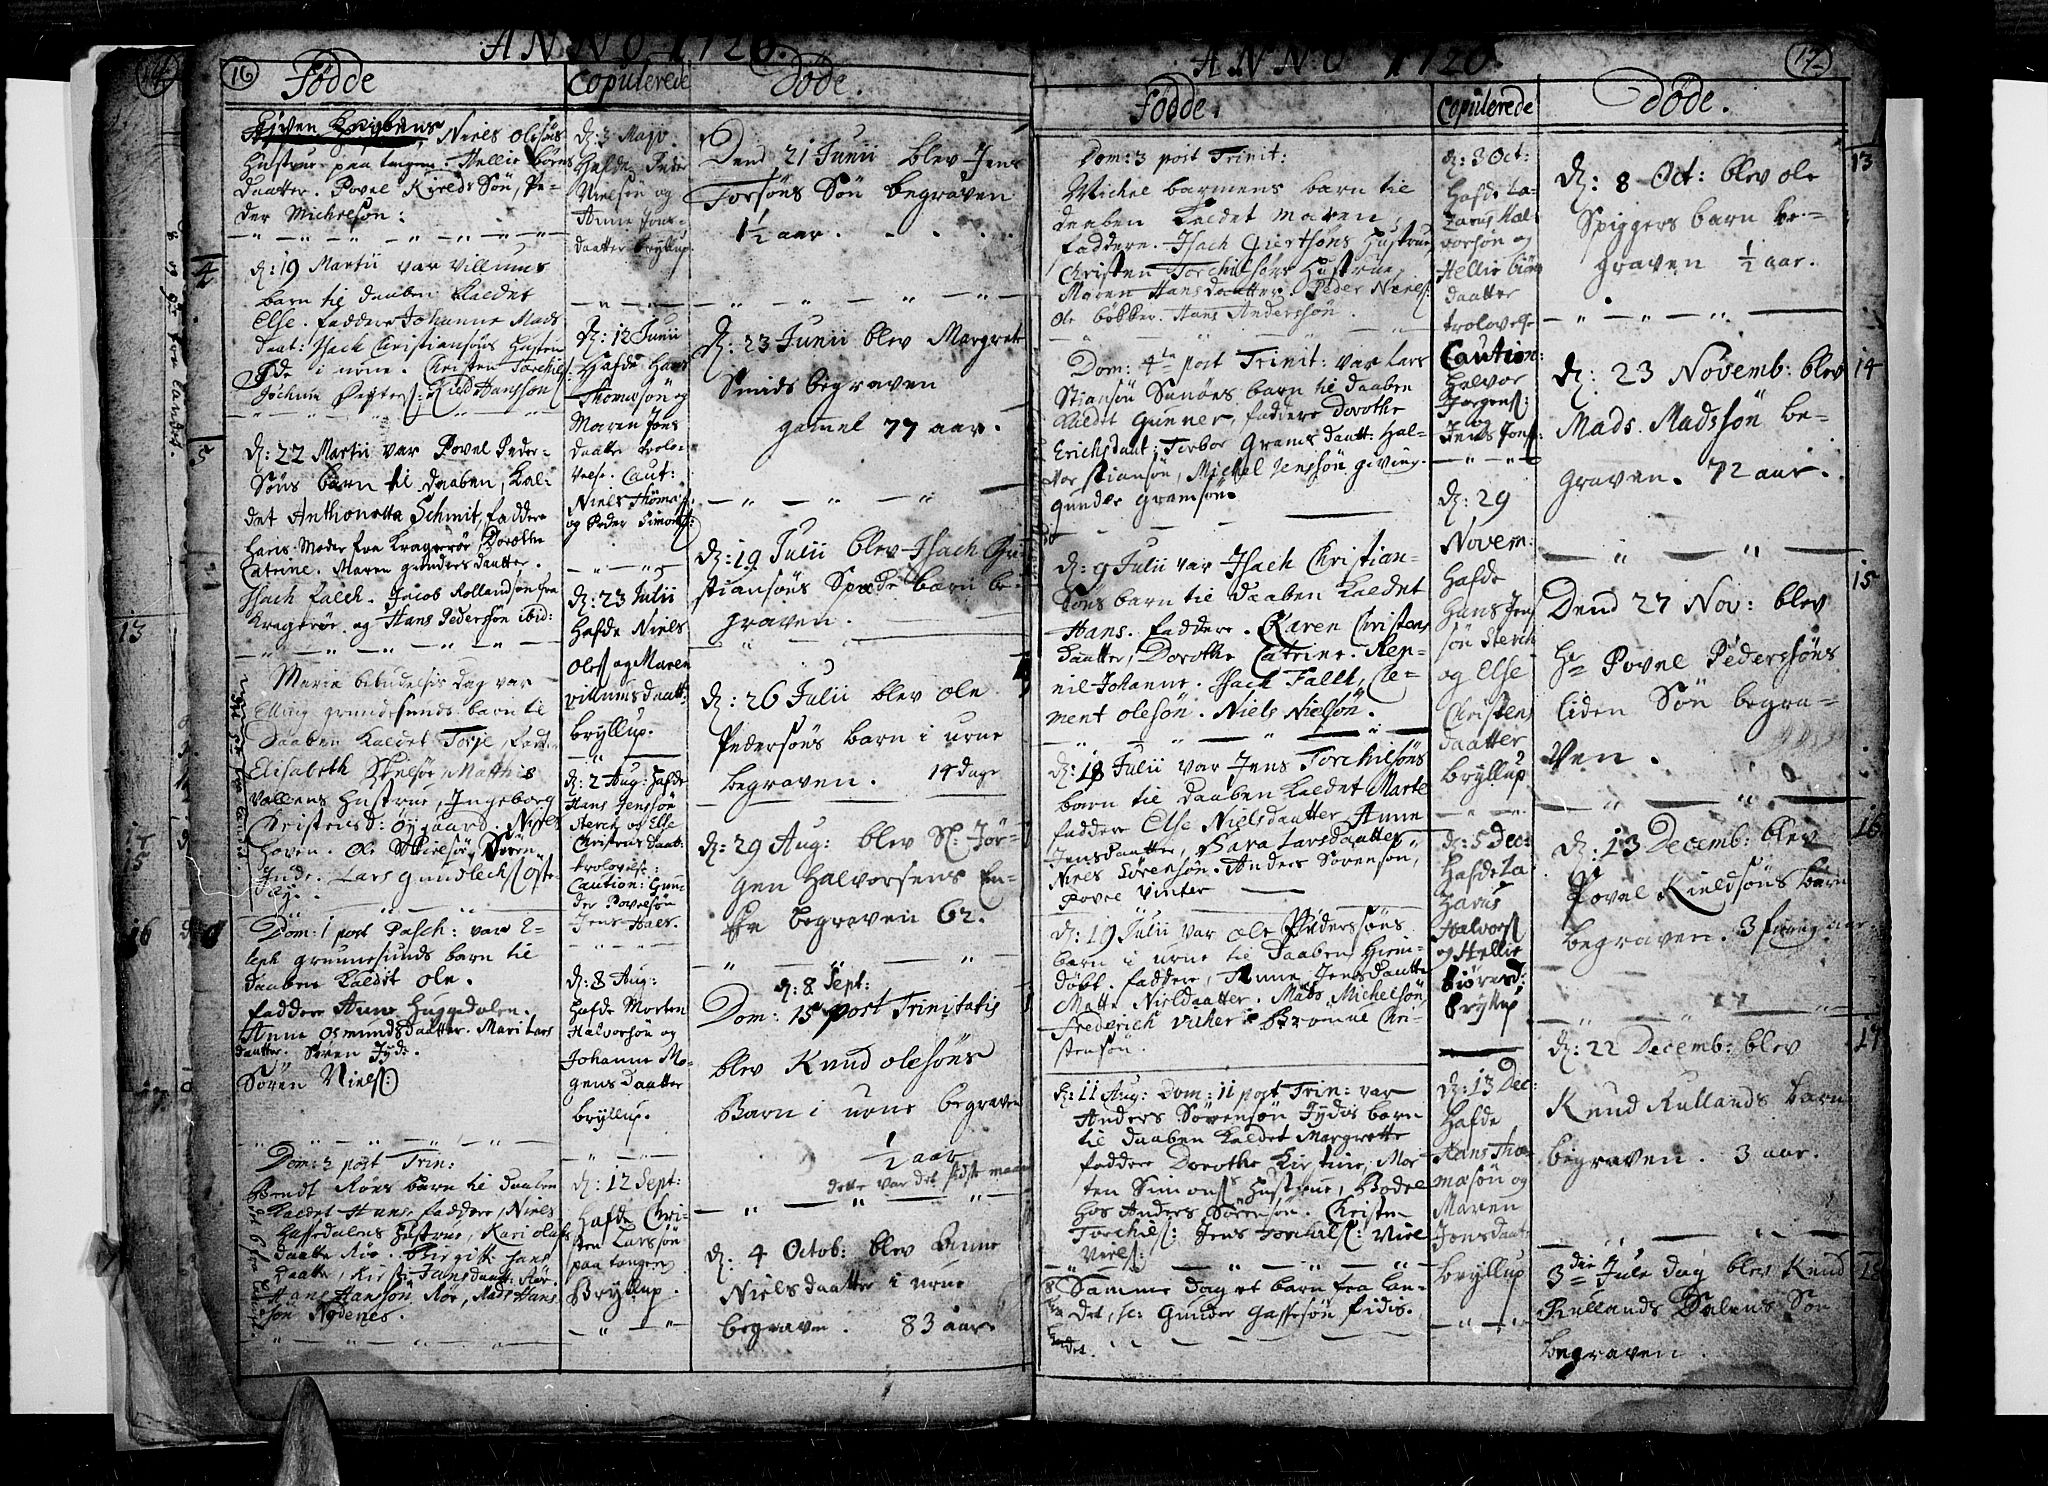 ANNO 1720.
16
Fødde
Copulerede
Døde.
Niels Olesøns
Hustrue paa tangen. Hellie Børns
Daatter. Povel Kields Søn, Pe-
der Michelsøn:
d: 19 Martii var Villums
barn til daaben kaldet
Else. faddere Johanne Mads
daat: Isach Christiansøns Hustru
i urne. Christen Torchils:
Jochum Kield Hansson
d: 22 Martii var Povel Peder-
Søns barn til Daaben, kal-
det Anthonetta Schmit, faddere
Hans Moder fra Kragerøe, Dorothe
Catrine. Maren gunders daatter.
Isach Falch. Jacob Rollandsøn fra
Kragerøe og Hans Pedersøn ibid:
Mariæ bebudelsis dag var
Elling grundesunds barn til
Daaben kaldet Torje, fadd
Elisabeth Mathis
Vallens Hustrue, Ingeborg
Christensd: Øygaard. Niels
Hoven. Ole Nielsøn, Søren
Jude. Lars Gundlechs:
Dom: 1 post Pasch: var E-
leph grunnesunds barn til
daaben kaldet Ole.
faddere Anne Huggdalen.
Anne Osmunds daatter. Mari Lars
daatter. Søren Jyde.
Søren Niels:
Dom: 2 post Trin:
Bendt Røes barn til daaben
kaldet Hans, faddere, Niels
Hassedalens Hustrue, Kari Olufs
daatter Røe. Birgitte Hans
daatter, Kirst: Hansdaatt: Røe.
Hans Hansøn Røe, Mads Hans
søn Nødenes.
d: 3 Maji.
Hafde Peder
Nielsen og
Anne Jens-
daatter bryllup
d: 12 Junii
Hafde Hans
Thomæsøn og
Maren Jons
daatter trolo-
velse. Caut:
Niels Thomæs:
og Peder Simons:
d: 23 Julii
Hafde Niels
Oles: og Maren
Villumsdaatt:
Bryllup.
d: 2 Aug: Hafde
Hans Jenssøn
Sterch og Else
Christens Daat:
trolovelse:
Caution: Gun
der Povelsøn
Jens Haes.
d: 8 Aug:
Hafde Morten
Halvorsøn og
Johanne Mo-
gens daatter
bryllup.
d: 12 Sept:
Hafde Chri-
sten Larssøn
paa tangen
Bryllup.
Dend 21 Junii blev Jens
Torsøns Søn begraven
1½ aar.
d: 23 Junii blev Margrete
Smids begraven
gamel 77 aar.
d: 19 Julii blev Isach Chri-
stiansøns Spæde barn be-
graven.
d: 26 Julii blev Ole
Pedersøns barn i urne
begraven. 14 dage
d: 29 Aug: blev Sl: Jør-
gen Halvorsens En-
ke begraven 62.
d: 8 Sept:
Dom: 15 post Trinitatis
blev Knud Olesøns
Barn i urne begraven
½ aar
dette var det sidste
d: 4 Octob: blev Anne
Nielsdaatter i urne
begraven. 83 aar
ANNO 1720
17
Fødde.
Copulerede
Døde.
Dom: 3 post Trinit:
Michel barmens barn til
daaben kaldet Maren,
faddere. Isach Giertsøns Hustrue,
Christen Torchilsøns Hustrue,
Maren Hansdaatter. Peder Niels:
Ole bøkker. Hans Anderssøn.
Dom: 4te post Trinit: var Lars
Stiansøn Sanøes barn til daaben
kaldet Gunner, faddere Dorothe
Erichsdaat: Torbor Grams daatt: Hal-
vor Stiansøn, Michel Jenssøn giving.
gunder Gramsøn.
d: 9 Julii var Isach Christian-
Søns barn til daaben kaldet
Hans. faddere. Karen Christens
daatter, Dorothe Catrine. Rep-
nil Johanne. Isach Falch, Cle-
ment Olesøn. Niels Nielsøn.
d: 18 Julii var Jens Torchilsøns
barn til Daaben kaldet Marte
faddere Else Nielsdaatter Anne
Jensdaatter, Sara Larsdaatter
Niels Sørensøn. Anders Sørensøn,
Povel Vinter
d: 19 Julii var Ole Pederssøns
barn i urne til Daaben Hjem-
døbt. faddere, Anne Jensdaatter
Matte Nielsdaatter. Mads Michelsøn,
Frederich Bromme Chri-
stensøn.
d: 11 Aug: Dom: 11 post Trin: var
Anders Sørensøn Jydes barn
til daaben kaldet Margrette
faddere Dorothe Kirstine, Mor
ten Simons: Hustrue, Bodel
Hos Anders Sørensøn. Christen
Torchils: Jens Torchils: Niel
Niels:
Samme dag et barn fra Lan-
det, sc: Gunder Gassesøn fidis.
d: 3 Oct:
Hafde La-
zarus Hal-
vorsøn og
Hellie Biørns
daatter
trolovelse
Caution:
Halvor
Jørgens:
og
Jens Jons:
d: 29
Novem:
Hafde
Hans Jens
søn Sterch
og Else
Christens
daatter
bryllup
d: 5 Dec:
Hafde La-
zarus
Halvors:
og Hellie
Biørnsd:
bryllup
d: 13 Dec:
Hafde
Hans Tho-
mæsøn og
Maren
Jonsdaatt
bryllup
d: 8 Oct: blev Ole
Spiggers barn be-
graven ½ aar.
d: 23 Novemb: blev
Mads Madssøn be-
graven. 72 aar.
Dend 27 Nov: blev
Hr Povel Pederssøns
liden Søn begra-
ven.
d: 13 Decemb: blev
Povel Kieldsøns barn
begraven. 3 aar.
d: 22 Decemb: blev
Knud Rullands barn
begraven. 3 aar.
3die Jule dag blev Knud
Rullands Dalens Søn
begraven.
13
14
15
16
17
18